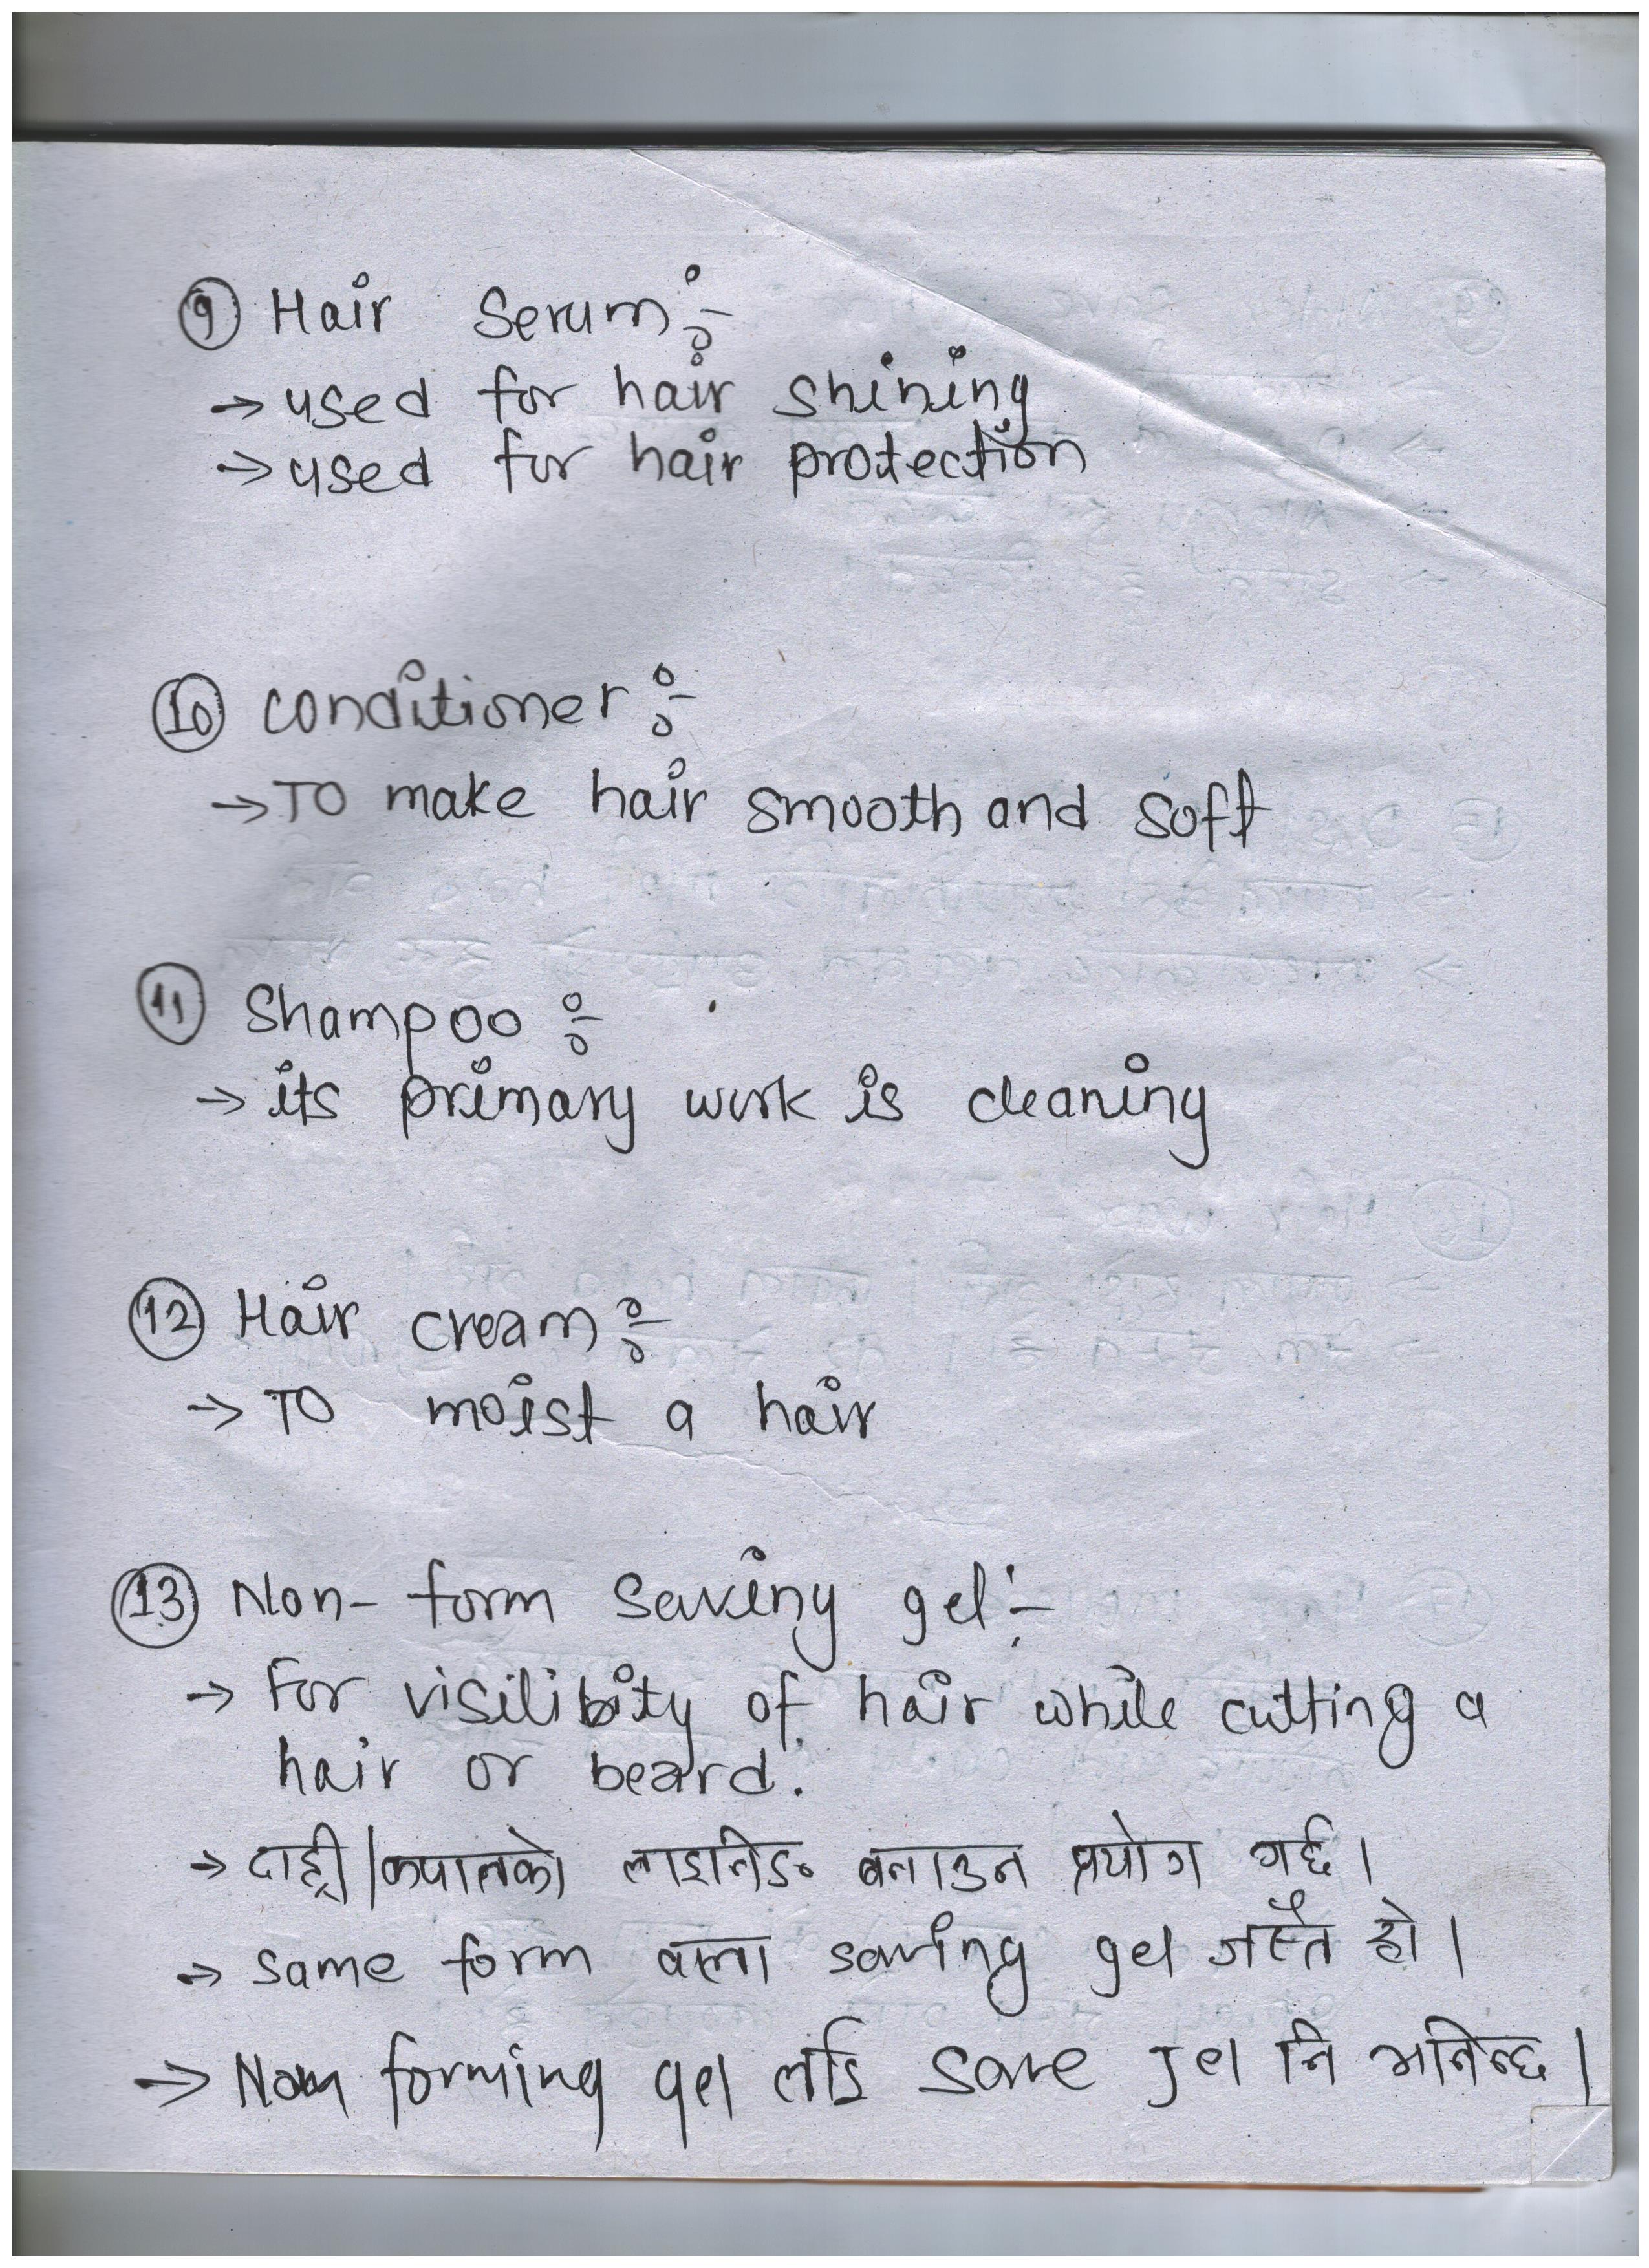 9 Hair Serum:-
→ used for hair shining
→ used for hair protection
10 conditioner :-
→ TO make hair smooth and soft
11 Shampoo :-
→ its primary work is cleaning
12 Hair cream :-
→ TO moist a hair
13 Non- form saving gel :-
→ For visilibity of hair while cutting a
hair or beard.
→ दाह्री/कपालको लाइनिङ बनाउन प्रयोग गर्छ।
→ same form वाला saving gel जस्तै हो।
→ Non forming gel लाई save Jel नि भनिन्छ।